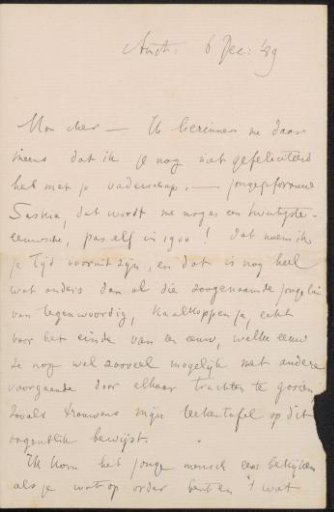 Amst. 6 Dec. '89
Mon cher — Ik herinner me daar
ineens dat ik je nog niet gefeliciteerd
heb met je vaderschap. — jongejuffrouw
Saskia, dat wordt me nog es een twintigste-
eeuwsche, pas elf in 1900! Dat noem ik
je tijd vooruit zijn, en dat is nog heel
wat anders dan al die zoogenaamde jongelui
van tegenwoordig, kaalkoppen ja, echt
voor het einde van een eeuw, welke eeuw
ze nog wel zooveel mogelijk met andere
voorgaande door elkaar trachten te gooien
zooals trouwens mijn teekentafel op dit
oogenblik bewijst.
Ik kom het jonge mensch eens bekijken
als je wat op orde bent en 't wat